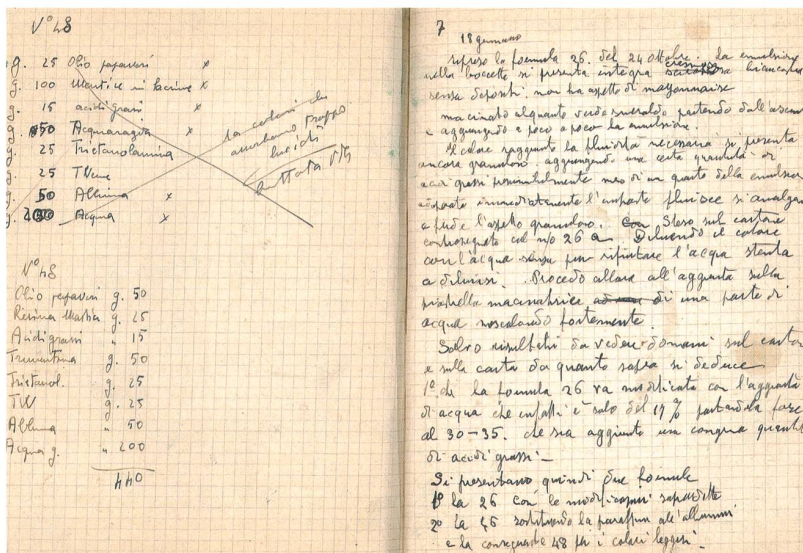 N° 48
g. 25 Olio papaveri
g. 100 Mastice in lacrime x
g. 15 acidi grassi x
g. 50 Acquaragia x
g. 25 Trietanolamina
g. 25 TWene
g. 50 Albumina x
g. 200 Acqua x
La colori che
assorbono troppo
lucidi
buttata via
N° 48
Olio papaveri g. 50
Resina Mastice g. 25
Acidi grassi " 15
Trementina g. 50
Trietanol. g. 25
TW g. 25
Albumina " 50
Acqua g. " 200
440
7
18 gennaio
ripreso la formula 26. del 24 ottobre. La emulsione
nella boccetta si presenta integra cremosa biancastra
senza depositi non ha aspetto di mayonnaise
macinato alquanto verde smeraldo partendo dall'asciutto
e aggiungendo a poco a poco la emulsione.
Il colore raggiunto la fluidità necessaria si presenta
ancora granuloso. aggiungendo una certa quantità di
acidi grassi presumibilmente meno di un quarto della emulsione
adoperata immediatamente l'impasto fluisce si amalgama
e perde l'aspetto granuloso. Steso sul cartone
contrassegnato col n/o 26 a. Diluendo il colore
con l'acqua senza pur rifiutare l'acqua stenta
a diluirsi. Procedo allora all'aggiunta sulla
piastrella macinatrice di una parte di
acqua mescolando fortemente.
Salvo risultati da vedere domani sul cartone
e sulla carta da quanto sopra si deduce
1° che la formula 26 va modificata con l'aggiunta
di acqua che infatti è solo del 17 % portandola forse
al 30-35. che sia aggiunta una congrua quantità
di acidi grassi. -
Si presentano quindi due formule
1° la 26 con le modificazioni sopradette
2° la 46 sostituendo la paraffina all'allumina
e la conseguente 48 per i colori leggeri. -